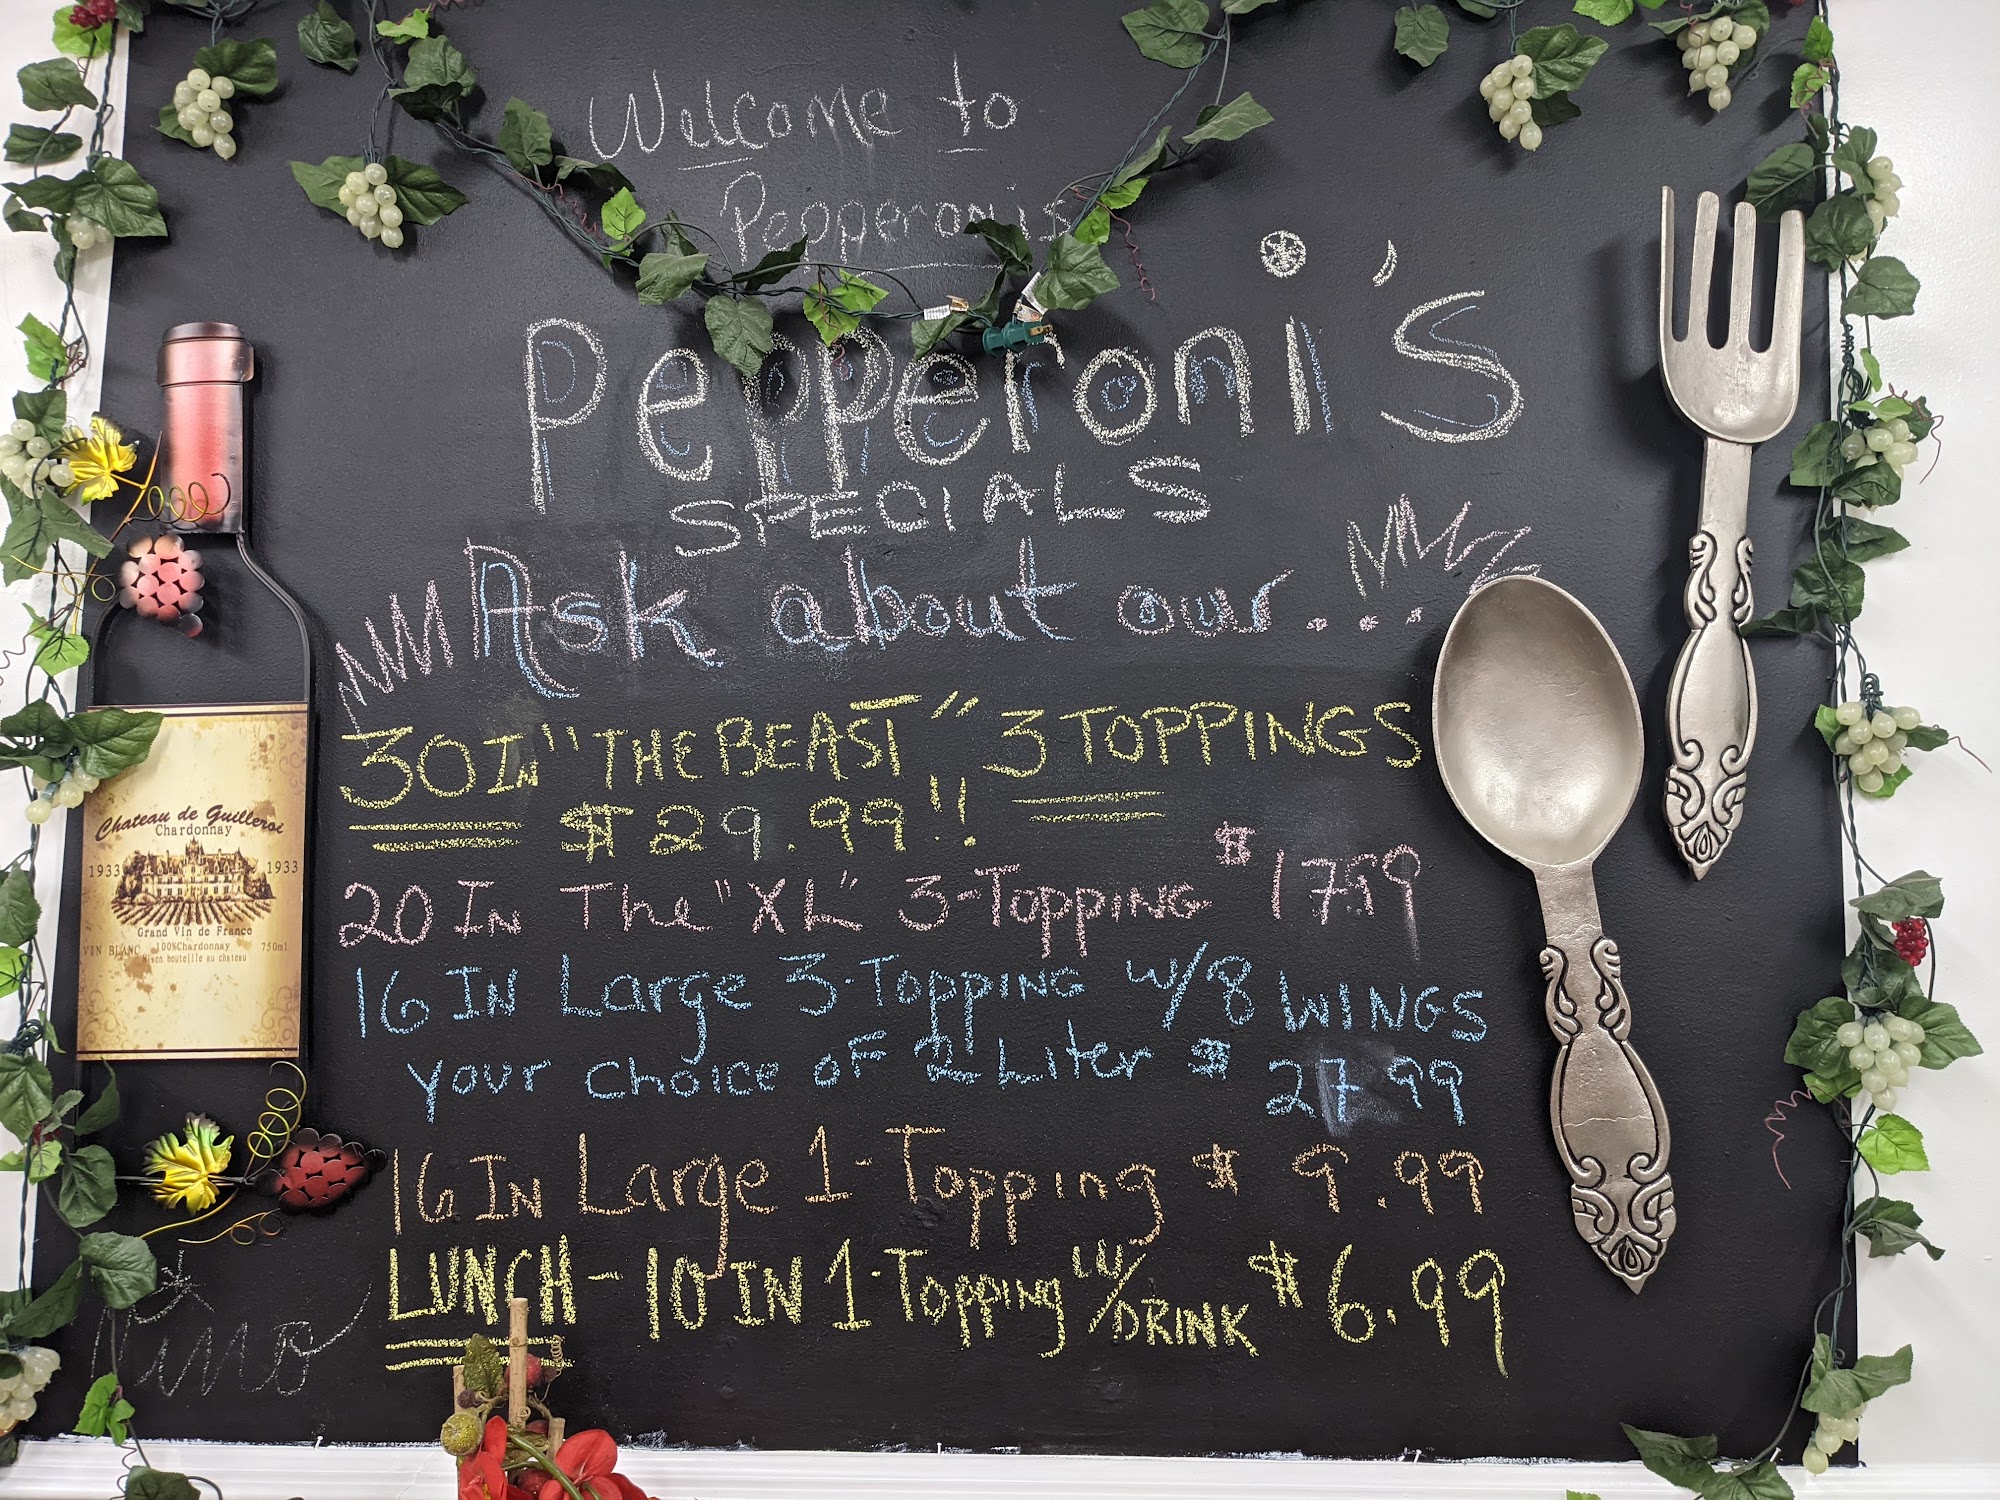 Welcome to
Pepperonis
Pepperoni's
SPECIALS
Ask about our...
30 IN "THE BEAST" 3 TOPPINGS
$29.99!!
20 IN The "XL" 3-TOPPING $17.99
16 IN Large 3-TOPPING w/8 WINGS
your choice of 2 Liter $27.99
16 IN Large 1-Topping $9.99
LUNCH - 10 IN 1-TOPPING w/DRINK $6.99
Chateau de Guilleroi
Chardonnay
1933 1933
Grand Vin de France
VIN BLANC 100%Chardonnay 750ml
Misen bouteille au chateau